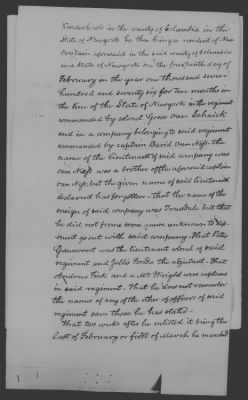 Kinderhook in the county of Columbia in the
State of Newyork he then being a resident of New
Britain aforesaid in the said county of Columbia
and State of Newyork on the fourteenth day of
February in the year one thousand seven
hundred and seventy six for ten months in
the line of the State of Newyork in the regiment
commanded by colonel Gosse van Schaick
and in a company belonging to said regiment
commanded by captain David van Ness. The
name of the Lieutenant of said company was
van Ness was a brother of the aforesaid captain
van Ness; but the given name of said lieutenant
declarant has forgotten - that the name of the
ensign of said company was Truesdale but that
he did not
went out with said company. That Peter
Gansevoort was the lieutenant colonel of said
regiment and Jellis Fonda the adjutant. That
Andrew Fink and a Mr Wright were captains
in said regiment. That he does not remember
the names of any of the other of officers of said
regiment save those he has stated.
That two weeks after he enlisted it being the
last of February or first of March he marched